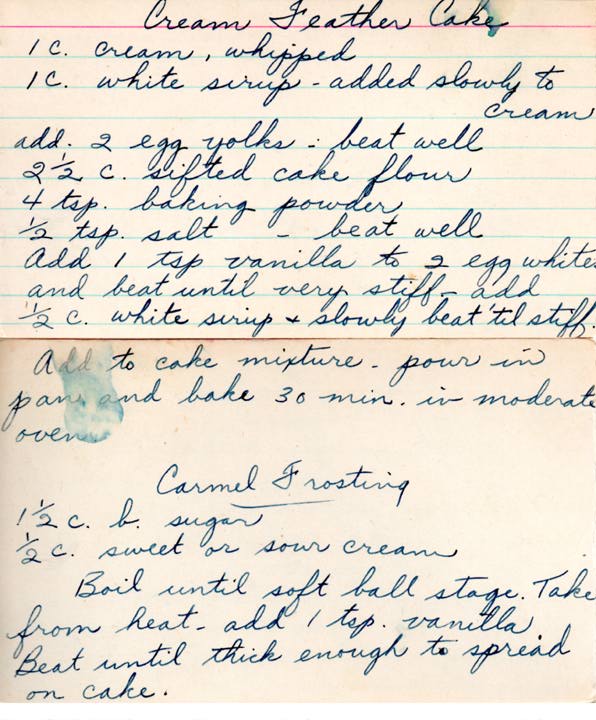 Cream Feather Cake
1 c. cream, whipped
1 c. white sirup - added slowly to
cream
add. 2 egg yolks - beat well
2 1/2 c. sifted cake flour
4 tsp. baking powder
1/2 tsp. salt - beat well
Add 1 tsp vanilla to 2 egg whites
and beat until very stiff - add
1/2 c. white sirup & slowly beat 'til stiff.
Add to cake mixture - pour in
pans and bake 30 min. in moderate
oven
Carmel Frosting
1 1/2 c. b. sugar
1/2 c. sweet or sour cream
Boil until soft ball stage. Take
from heat - add 1 tsp. vanilla
Beat until thick enough to spread
on cake.